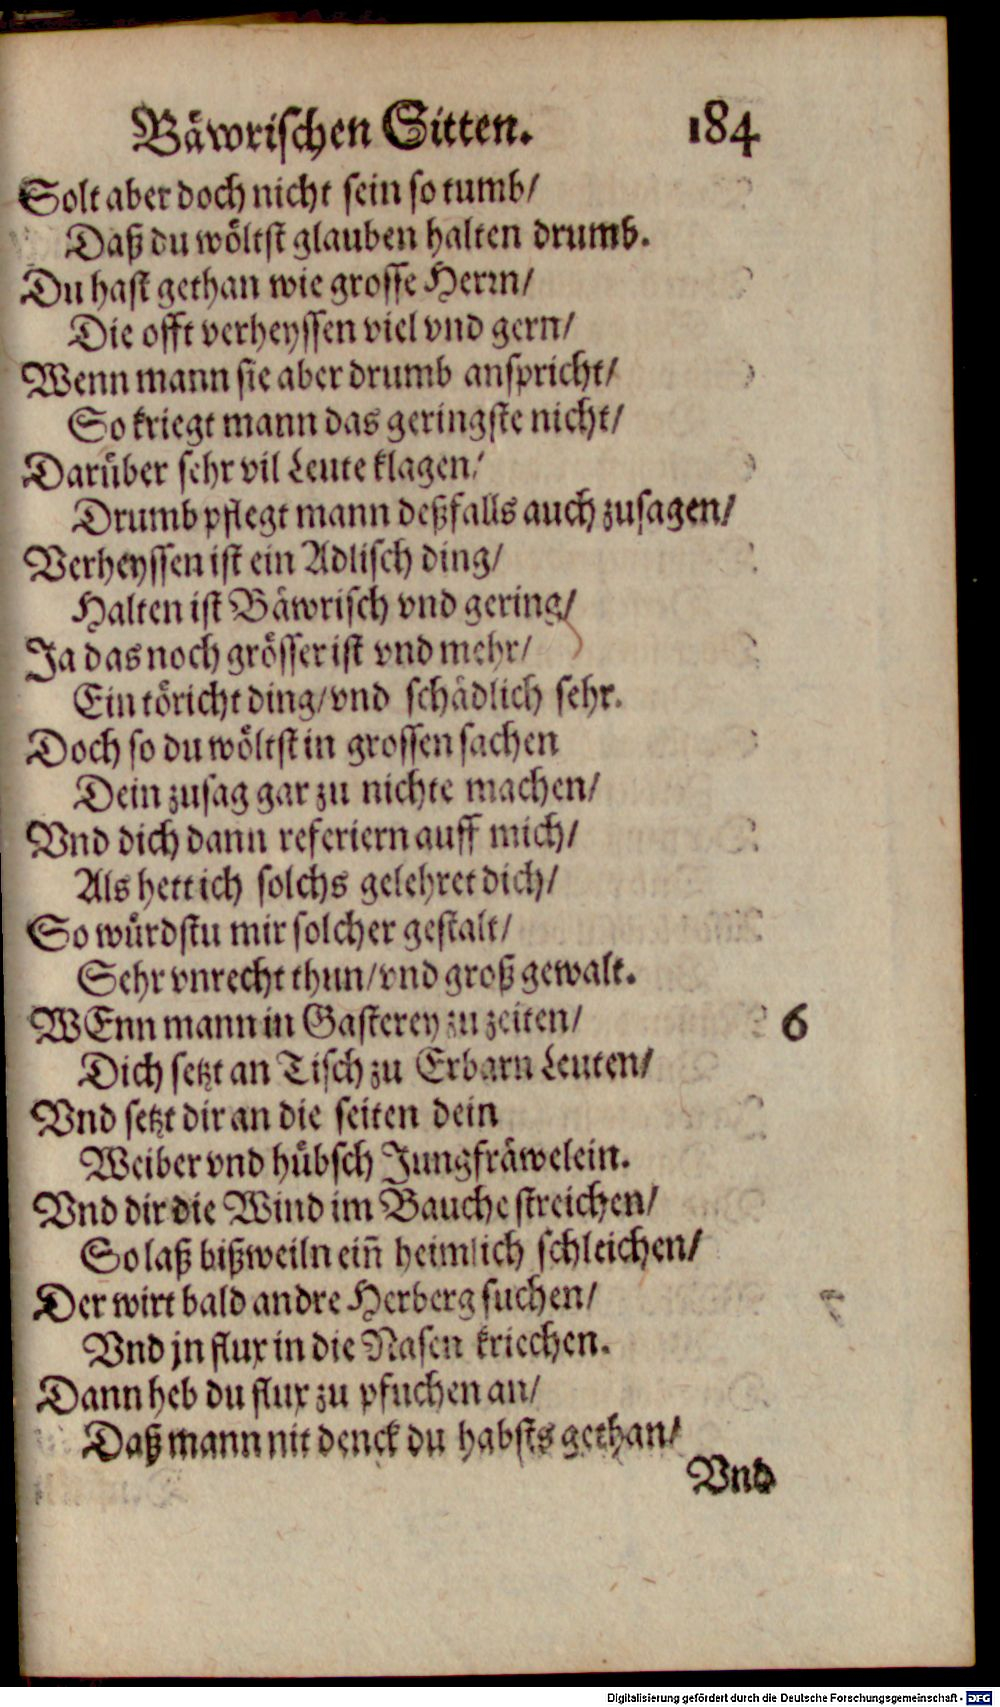 Bäwrischen Sitten. 184
Solt aber doch nicht sein so tumb/
Daß du wöltst glauben halten drumb.
Du hast gethan wie grosse Herrn/
Die offt verheyssen viel vnd gern/
Wenn mann sie aber drumb anspricht/
So kriegt mann das geringste nicht/
Darüber sehr vil Leute klagen/
Drumb pflegt mann deßfalls auch zusagen/
Verheyssen ist ein Adlisch ding/
Halten ist Bäwrisch vnd gering/
Ja das noch grösser ist vnd mehr/
Ein töricht ding/vnd schädlich sehr.
Doch so du wöltst in grossen sachen
Dein zusag gar zu nichte machen/
Vnd dich dann referiern auff mich/
Als hett ich solchs gelehret dich/
So würdstu mir solcher gestalt/
Sehr vnrecht thun/vnd groß gewalt.
WEnn mann in Gasterey zu zeiten/ 6
Dich setzt an Tisch zu Erbarn Leuten/
Vnd setzt dir an die seiten dein
Weiber vnd hübsch Jungfräwelein.
Vnd dir die Wind im Bauche streichen/
So laß bißweiln ein̄ heimlich schleichen/
Der wirt bald andre Herberg suchen/
Vnd jn flux in die Nasen kriechen.
Dann heb du flux zu pfuchen an/
Daß mann nit denck du habsts gethan/
Vnd
Digitalisierung gefördert durch die Deutsche Forschungsgemeinschaft - DFG